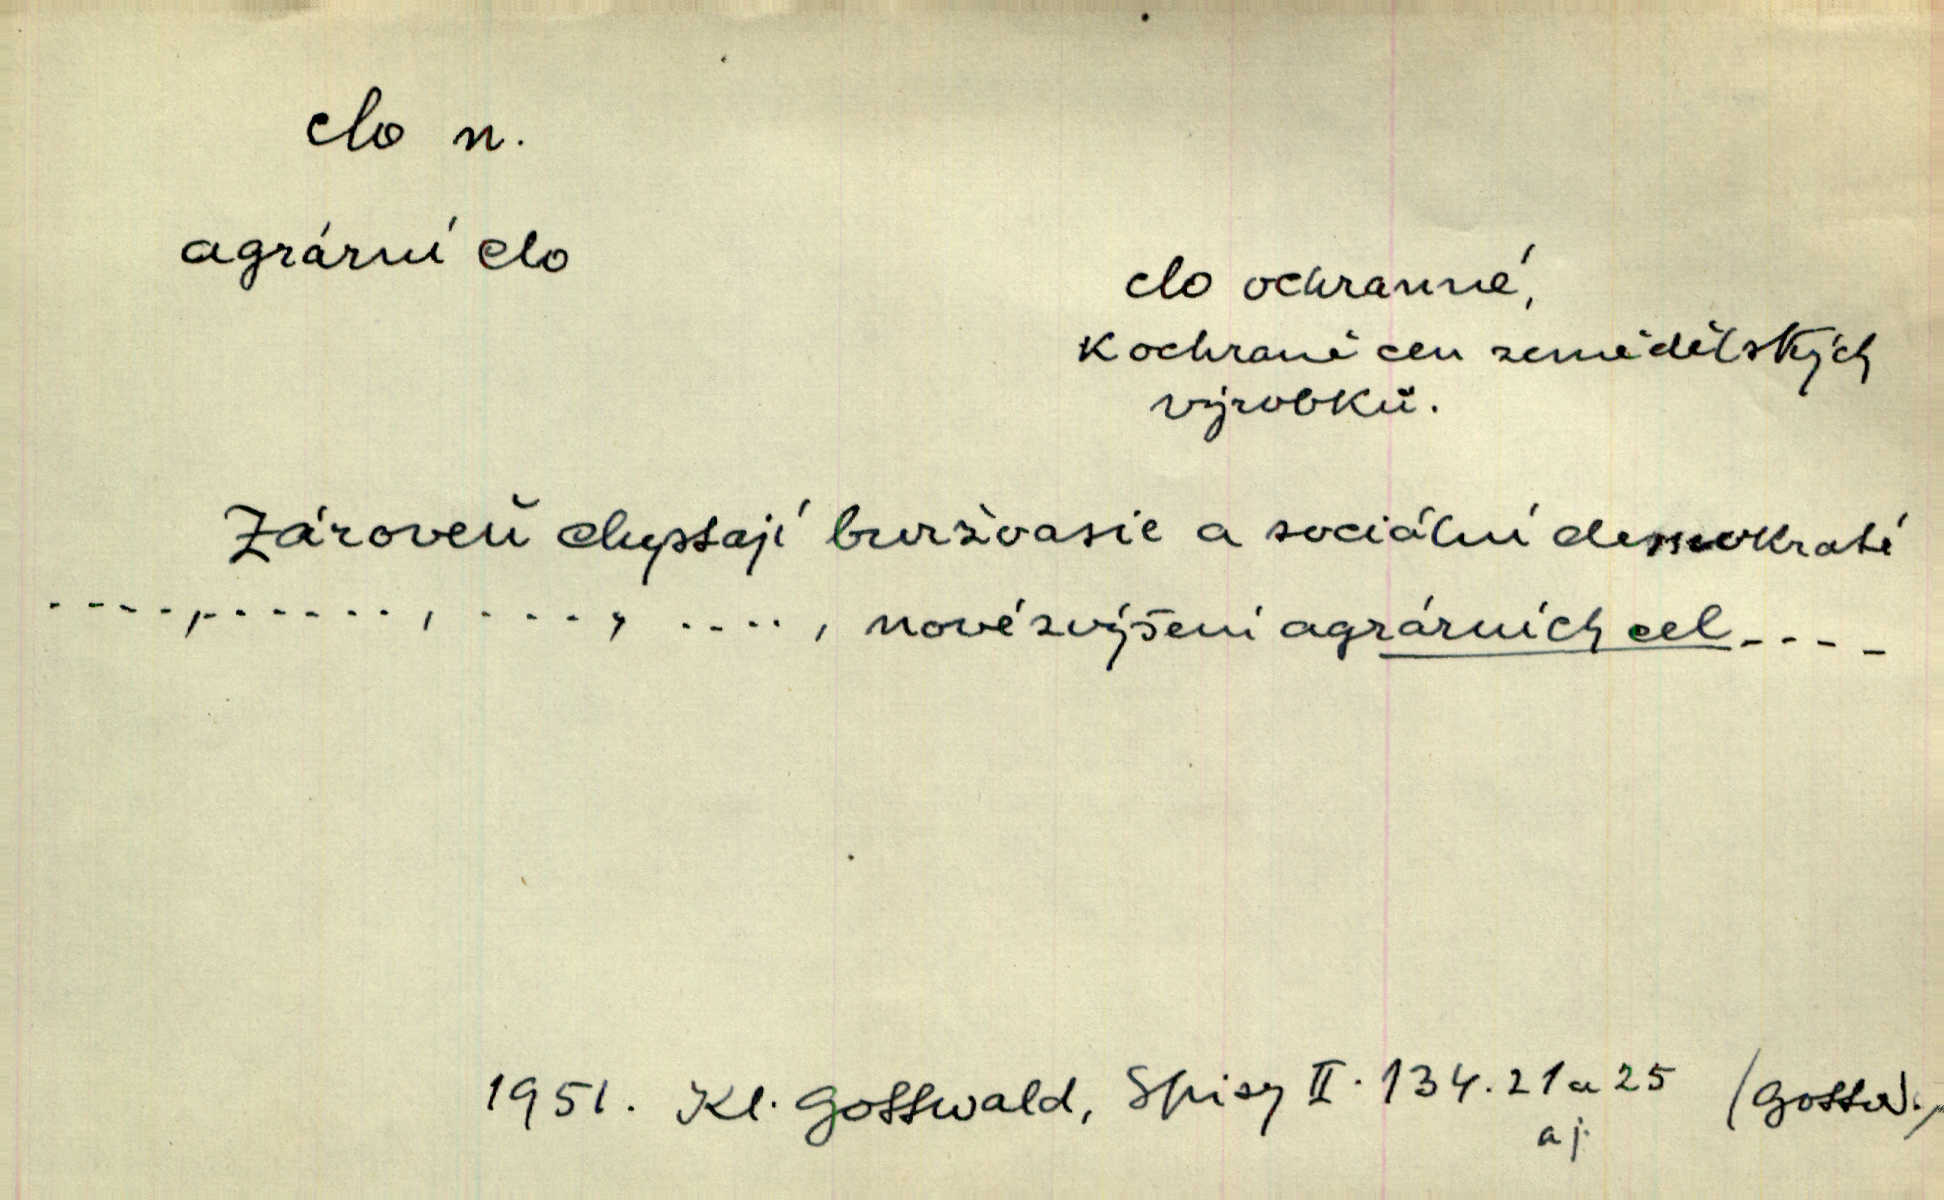 clo n.
agrární clo
clo ochranné,
k ochraně cen zemědělských
výrobků.
Zároveň chystají buržoasie a sociální demokraté
....,......, ...., ...., nové zvýšení agrárních cel....
1951. Kl. Gottwald, Spisy II. 134. 21 a 25 (Gottw.)
a j.